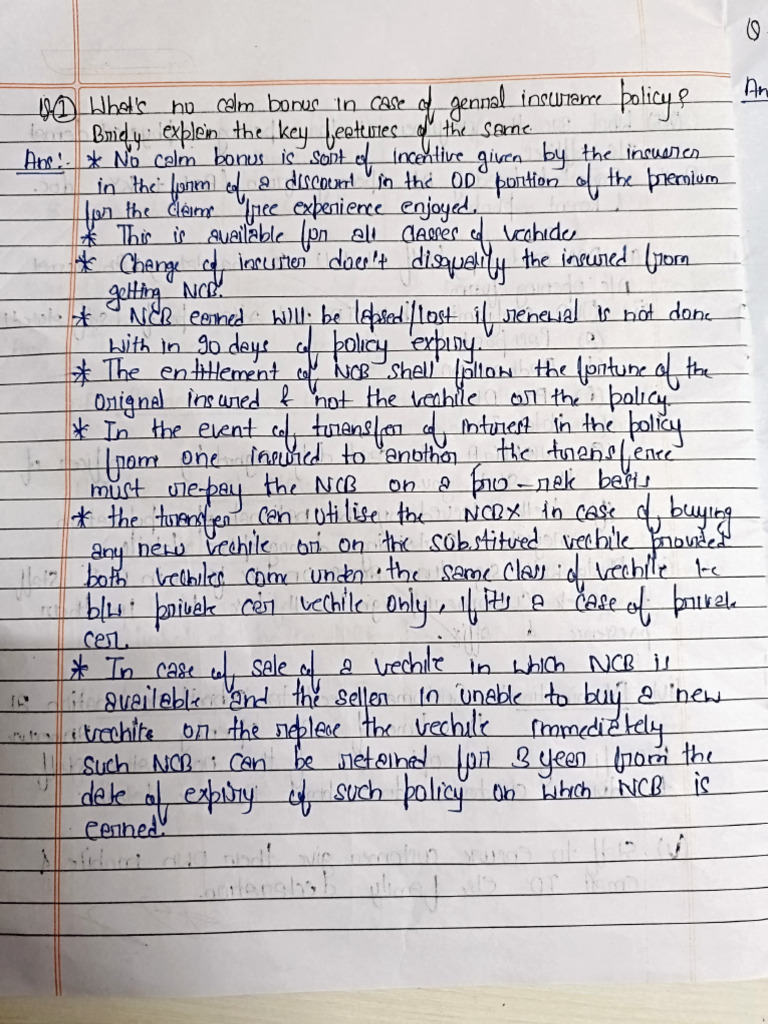 Q① What's no calm bonus in case of gennal insurance policy?
Briefy explein the key features of the same
Ans:- * No calm bonus is sort of incentive given by the insurer
in the form of a discount in the OD portion of the premium
for the claims free experience enjoyed.
* This is available for all classes of vechide
* Change of insurer does't disqualify the insured from
getting NCB.
* NCB earned will be lapsed/lost if renewal is not done
with in 90 days of policy expiry.
* The entitlement of NCB shall follow the fortune of the
orignal insured & not the vechile or the policy
* In the event of transfer of interest in the policy
from one insured to another the transferee
must re-pay the NCB on a pro-rate basis
* the transfer can utilise the NCB in case of buying
any new vechile or on the substitued vechile provided
both vechiles come under the same class of vechile i-e
b/w private car vechile only, if its a case of private
car.
* In case of sale of a vechile in which NCB is
available and the seller in unable to buy a new
vechile or the replace the vechile immediately
such NCB can be retained for 3 year from the
date of expiry of such policy on which NCB is
earned.
Q
An